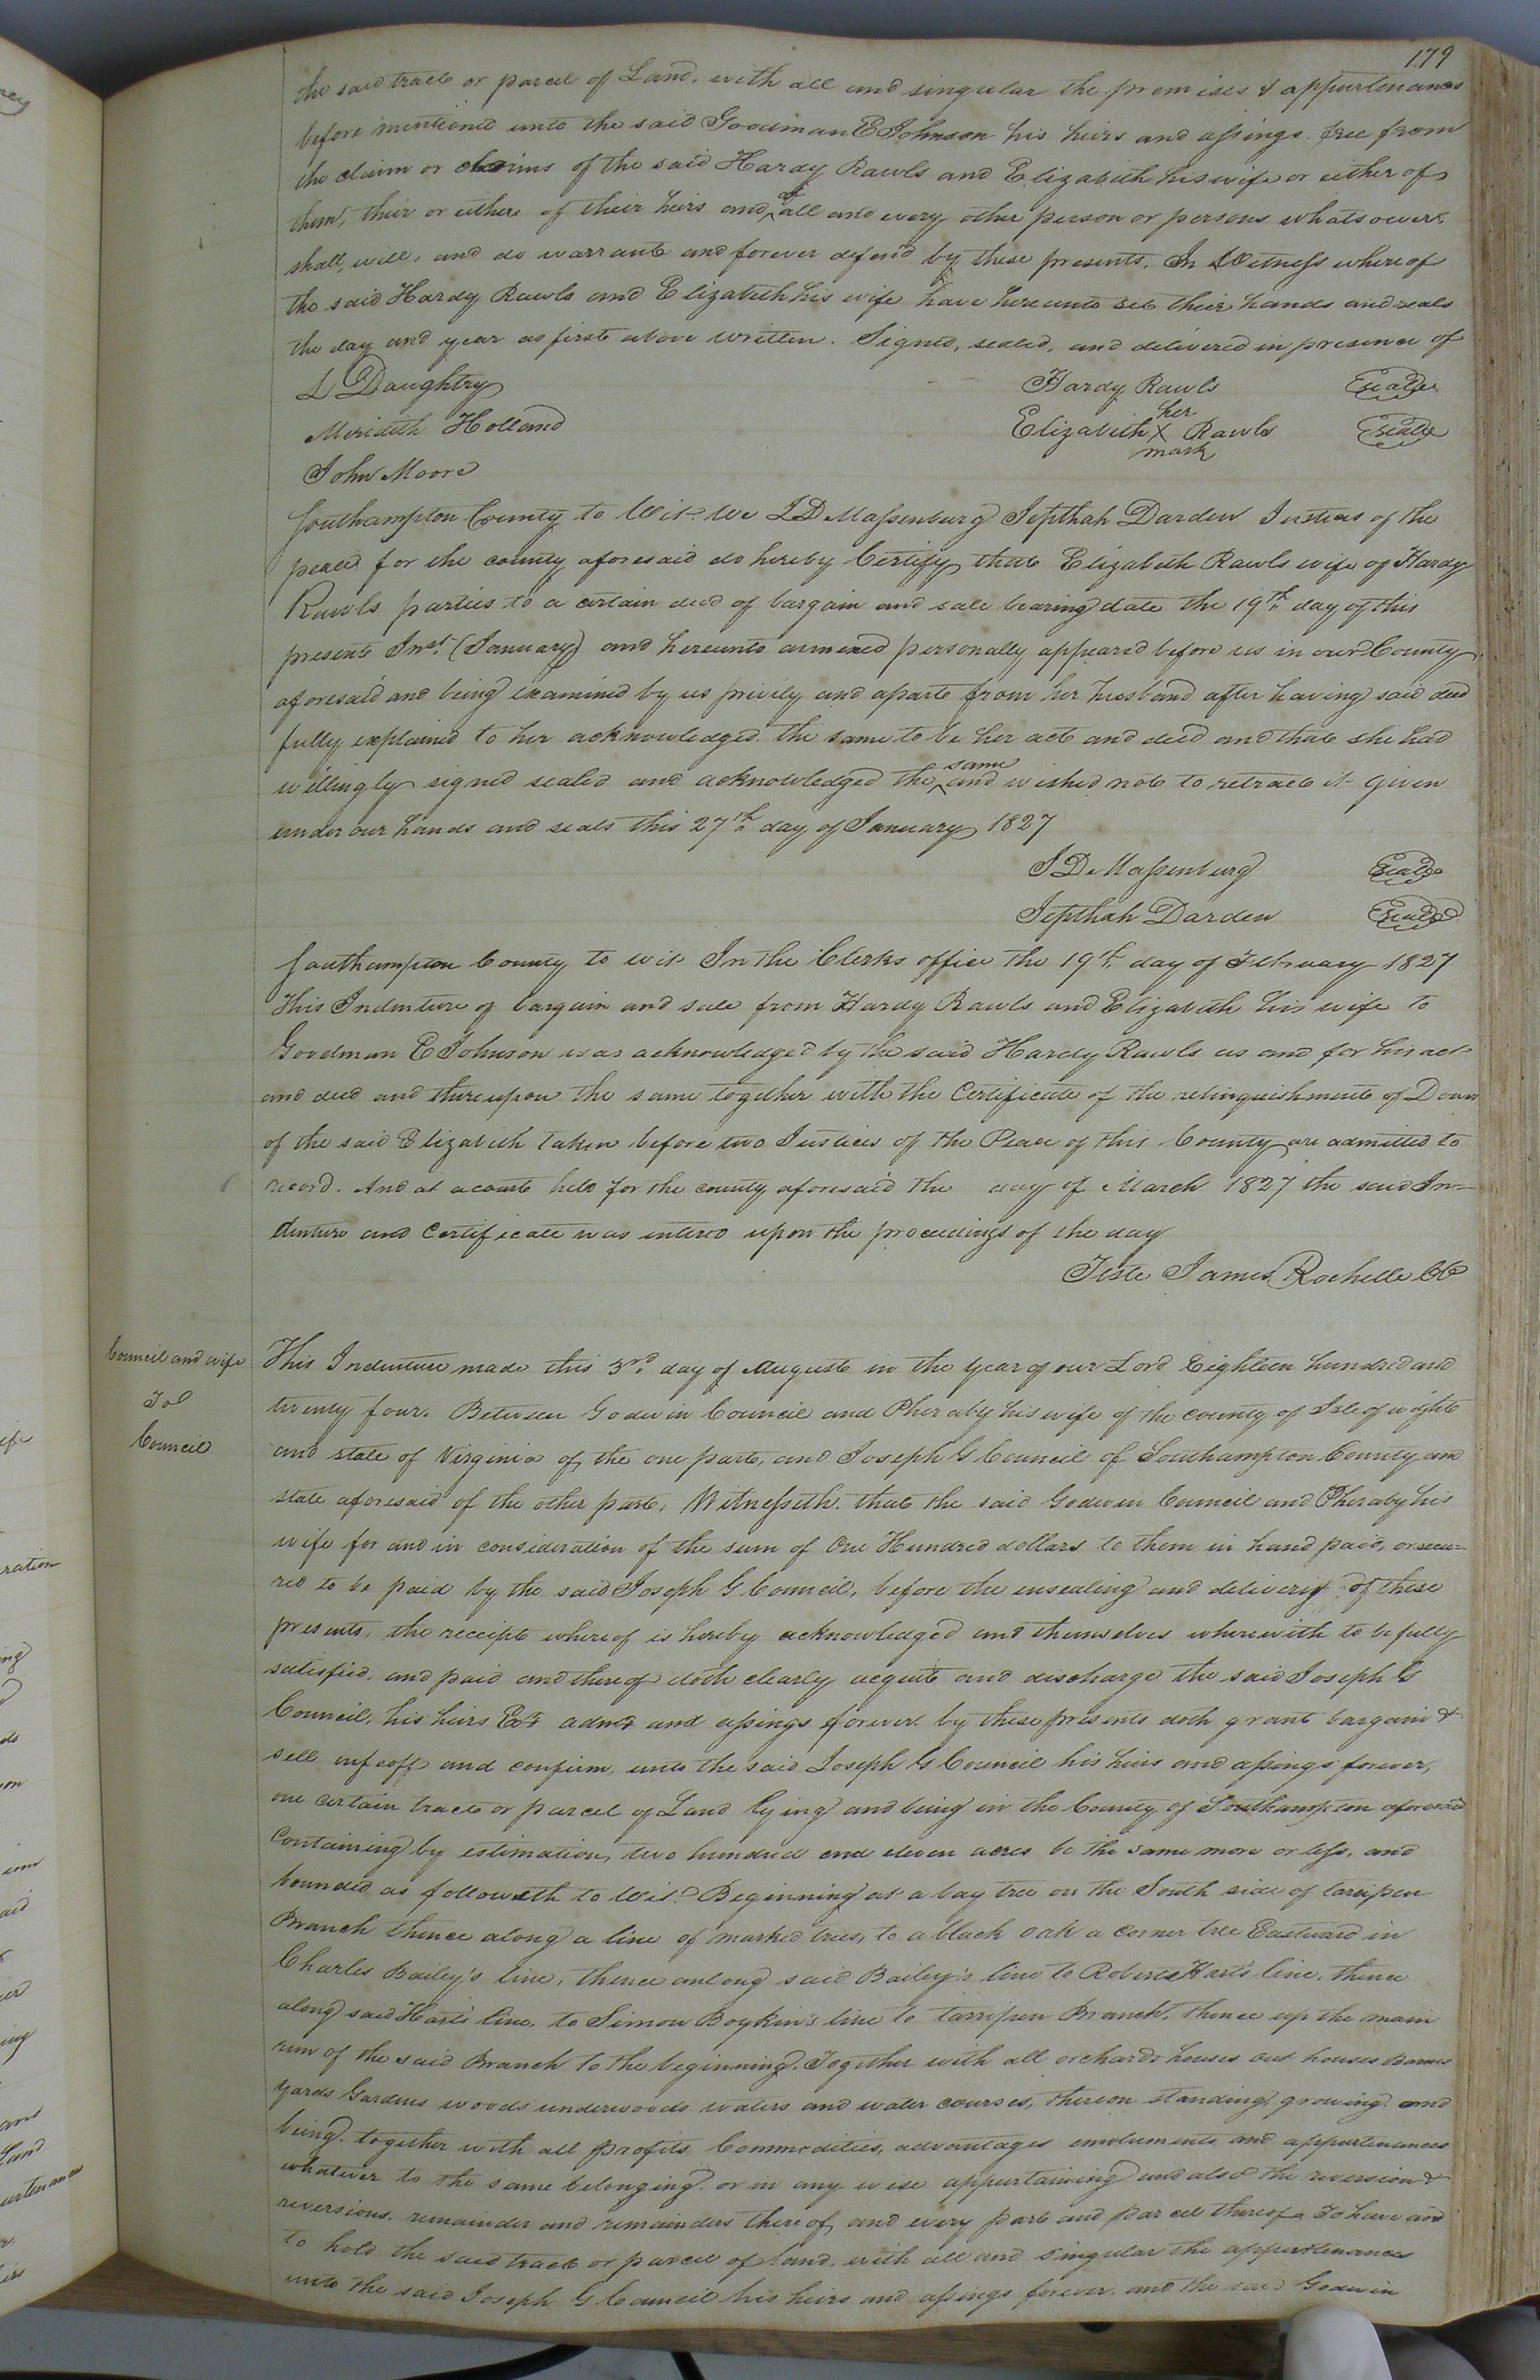 179
the said tract or parcel of Land, with all and singular the premises & appurtenances
before mentioned unto the said Goodman E Johnson his heirs and assings free from
the claim or claims of the said Hardy Rawls and Elizabeth his wife or either of
them, their or either of their heirs and of all and every other person or persons whatsoever,
shall, will, and do warrant and forever defend by these presents. In Witness whereof
the said Hardy Rawls and Elizabeth his wife have hereunto set their hands and seals
the day and year as first above written. Signed, sealed, and delivered in presence of
L Daughtry Hardy Rawls Seal
Meridith Holland Elizabeth her X mark Rawls Seal
John Moore
Southampton County to Wit. We I D Massenburg Jepthah Darden Justices of the
peace for the county aforesaid do hereby Certify that Elizabeth Rawls wife of Hardy
Rawls parties to a certain deed of bargain and sale bearing date the 19th day of this
present Inst (January) and hereunto annexed personally appeared before us in our County
aforesaid and being examined by us privily and apart from her husband after having said deed
fully explained to her acknowledged the same to be her act and deed and that she had
willingly signed sealed and acknowledged the same and wished not to retract it Given
under our hands and seals this 27th day of January 1827
I D Massenburg Seal
Jepthah Darden Seal
Southampton County to wit In the Clerks office the 19th day of February 1827
This Indenture of bargain and sale from Hardy Rawls and Elizabeth his wife to
Goodman E Johnson was acknowledged by the said Hardy Rawls as and for his act
and deed and thereupon the same together with the Certificate of the relinquishment of Dower
of the said Elizabeth taken before two Justices of the Peace of this County are admitted to
record. And at a court held for the county aforesaid the day of March 1827 the said In-
denture and Certificate was entered upon the proceedings of the day
Teste James Rochelle CC
Council and wife
To
Council
This Indenture made this 3rd day of August in the Year of our Lord Eighteen hundred and
twenty four. Between Godwin Council and Pheraby his wife of the county of Isle of wight
and state of Virginia of the one part, and Joseph G Council of Southampton County and
state aforesaid of the other part, Witnesseth. that the said Godwin Council and Pheraby his
wife for and in consideration of the sum of One Hundred dollars to them in hand paid, or secu-
red to be paid by the said Joseph G Council, before the ensealing and delivery of these
presents, the receipt whereof is hereby acknowledged and themselves wherewith to be fully
satisfied, and paid and thereof doth clearly acquit and discharge the said Joseph G
Council, his heirs Exr admr and assings forever by these presents doth grant bargain &
sell infeoff and confirm unto the said Joseph G Council his heirs and assings forever,
one certain tract or parcel of Land lying and being in the County of Southampton aforesaid
Containing by estimation, two hundred and eleven acres be the same more or less, and
bounded as followeth to Wit. Beginning at a bay tree on the South side of
Branch thence along a line of marked trees, to a black oak a corner tree Eastward in
Charles Bailey's line, thence anlong said Bailey's line to Roberts Hart's line, thence
along said Hart's line, to Simon Boykin's line to Tarripen Branch, thence up the main
run of the said Branch to the beginning. Together with all orchards houses out houses Barnes
yards Gardens woods underwoods waters and water courses, thereon standing, growing and
being. together with all profits Commodities, advantages emoluments and appurtenances
whatever to the same belonging. or in any wise appurtaining and also the reversion &
reversions. remainder and remainders thereof, and every part and parcel thereof. To have and
to hold the said tract or parcel of land, with all and singular the appurtenances
unto the said Joseph G Council his heirs and assings forever. and the said Godwin